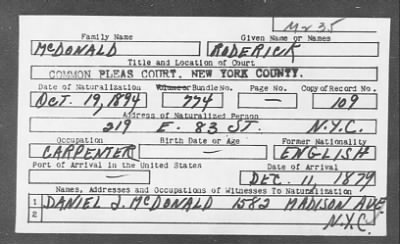 M-235
Family Name Given Name or Names
McDONALD RODERICK
Title and Location of Court
COMMON PLEAS COURT. NEW YORK COUNTY.
Date of Naturalization Volume or Bundle No. Page No. Copy of Record No.
OCT. 19, 1894 774 — 109
Address of Naturalized Person
219 E. 83 ST. N.Y.C.
Occupation Birth Date or Age Former Nationality
CARPENTER — ENGLISH
Port of Arrival in the United States Date of Arrival
— DEC. 11, 1879
Names, Addresses and Occupations of Witnesses To Naturalization
1 DANIEL J. McDONALD 1582 MADISON AVE
2 N.Y.C.